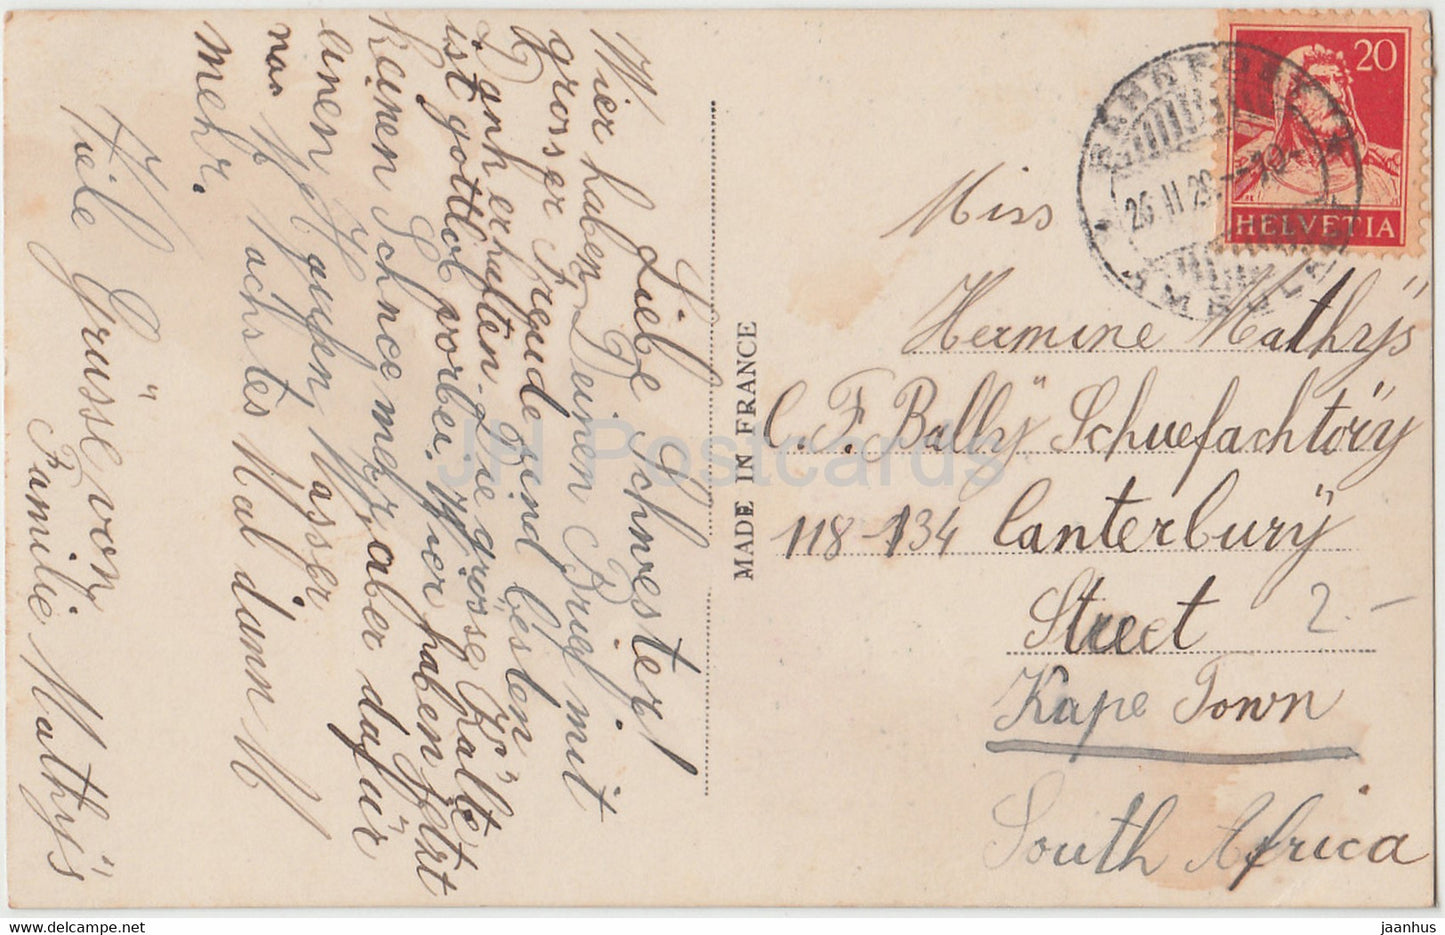 Liebe Schwester!
Wier haben Deinen Brief mit
grosser Freude und besten
Dank erhalten. Die grosse Kälte
ist gottlob vorbei. Hier haben Jezt
keinen Schnee mer, aber dafür
einen gaufen Wasser
Nächstes Mal dann
mehr.
Viele Grüsse von
Familie Mathÿs
MADE IN FRANCE
HELVETIA
20
26.II.29.-10-
Miss
Hermine Mathÿs
C. F. Ballÿ Schuefachtörÿ
118-134 Canterburÿ
Street
Kape Town
South Africa
2.-
JH Postcards
www.hippostcard.com
jaanhus